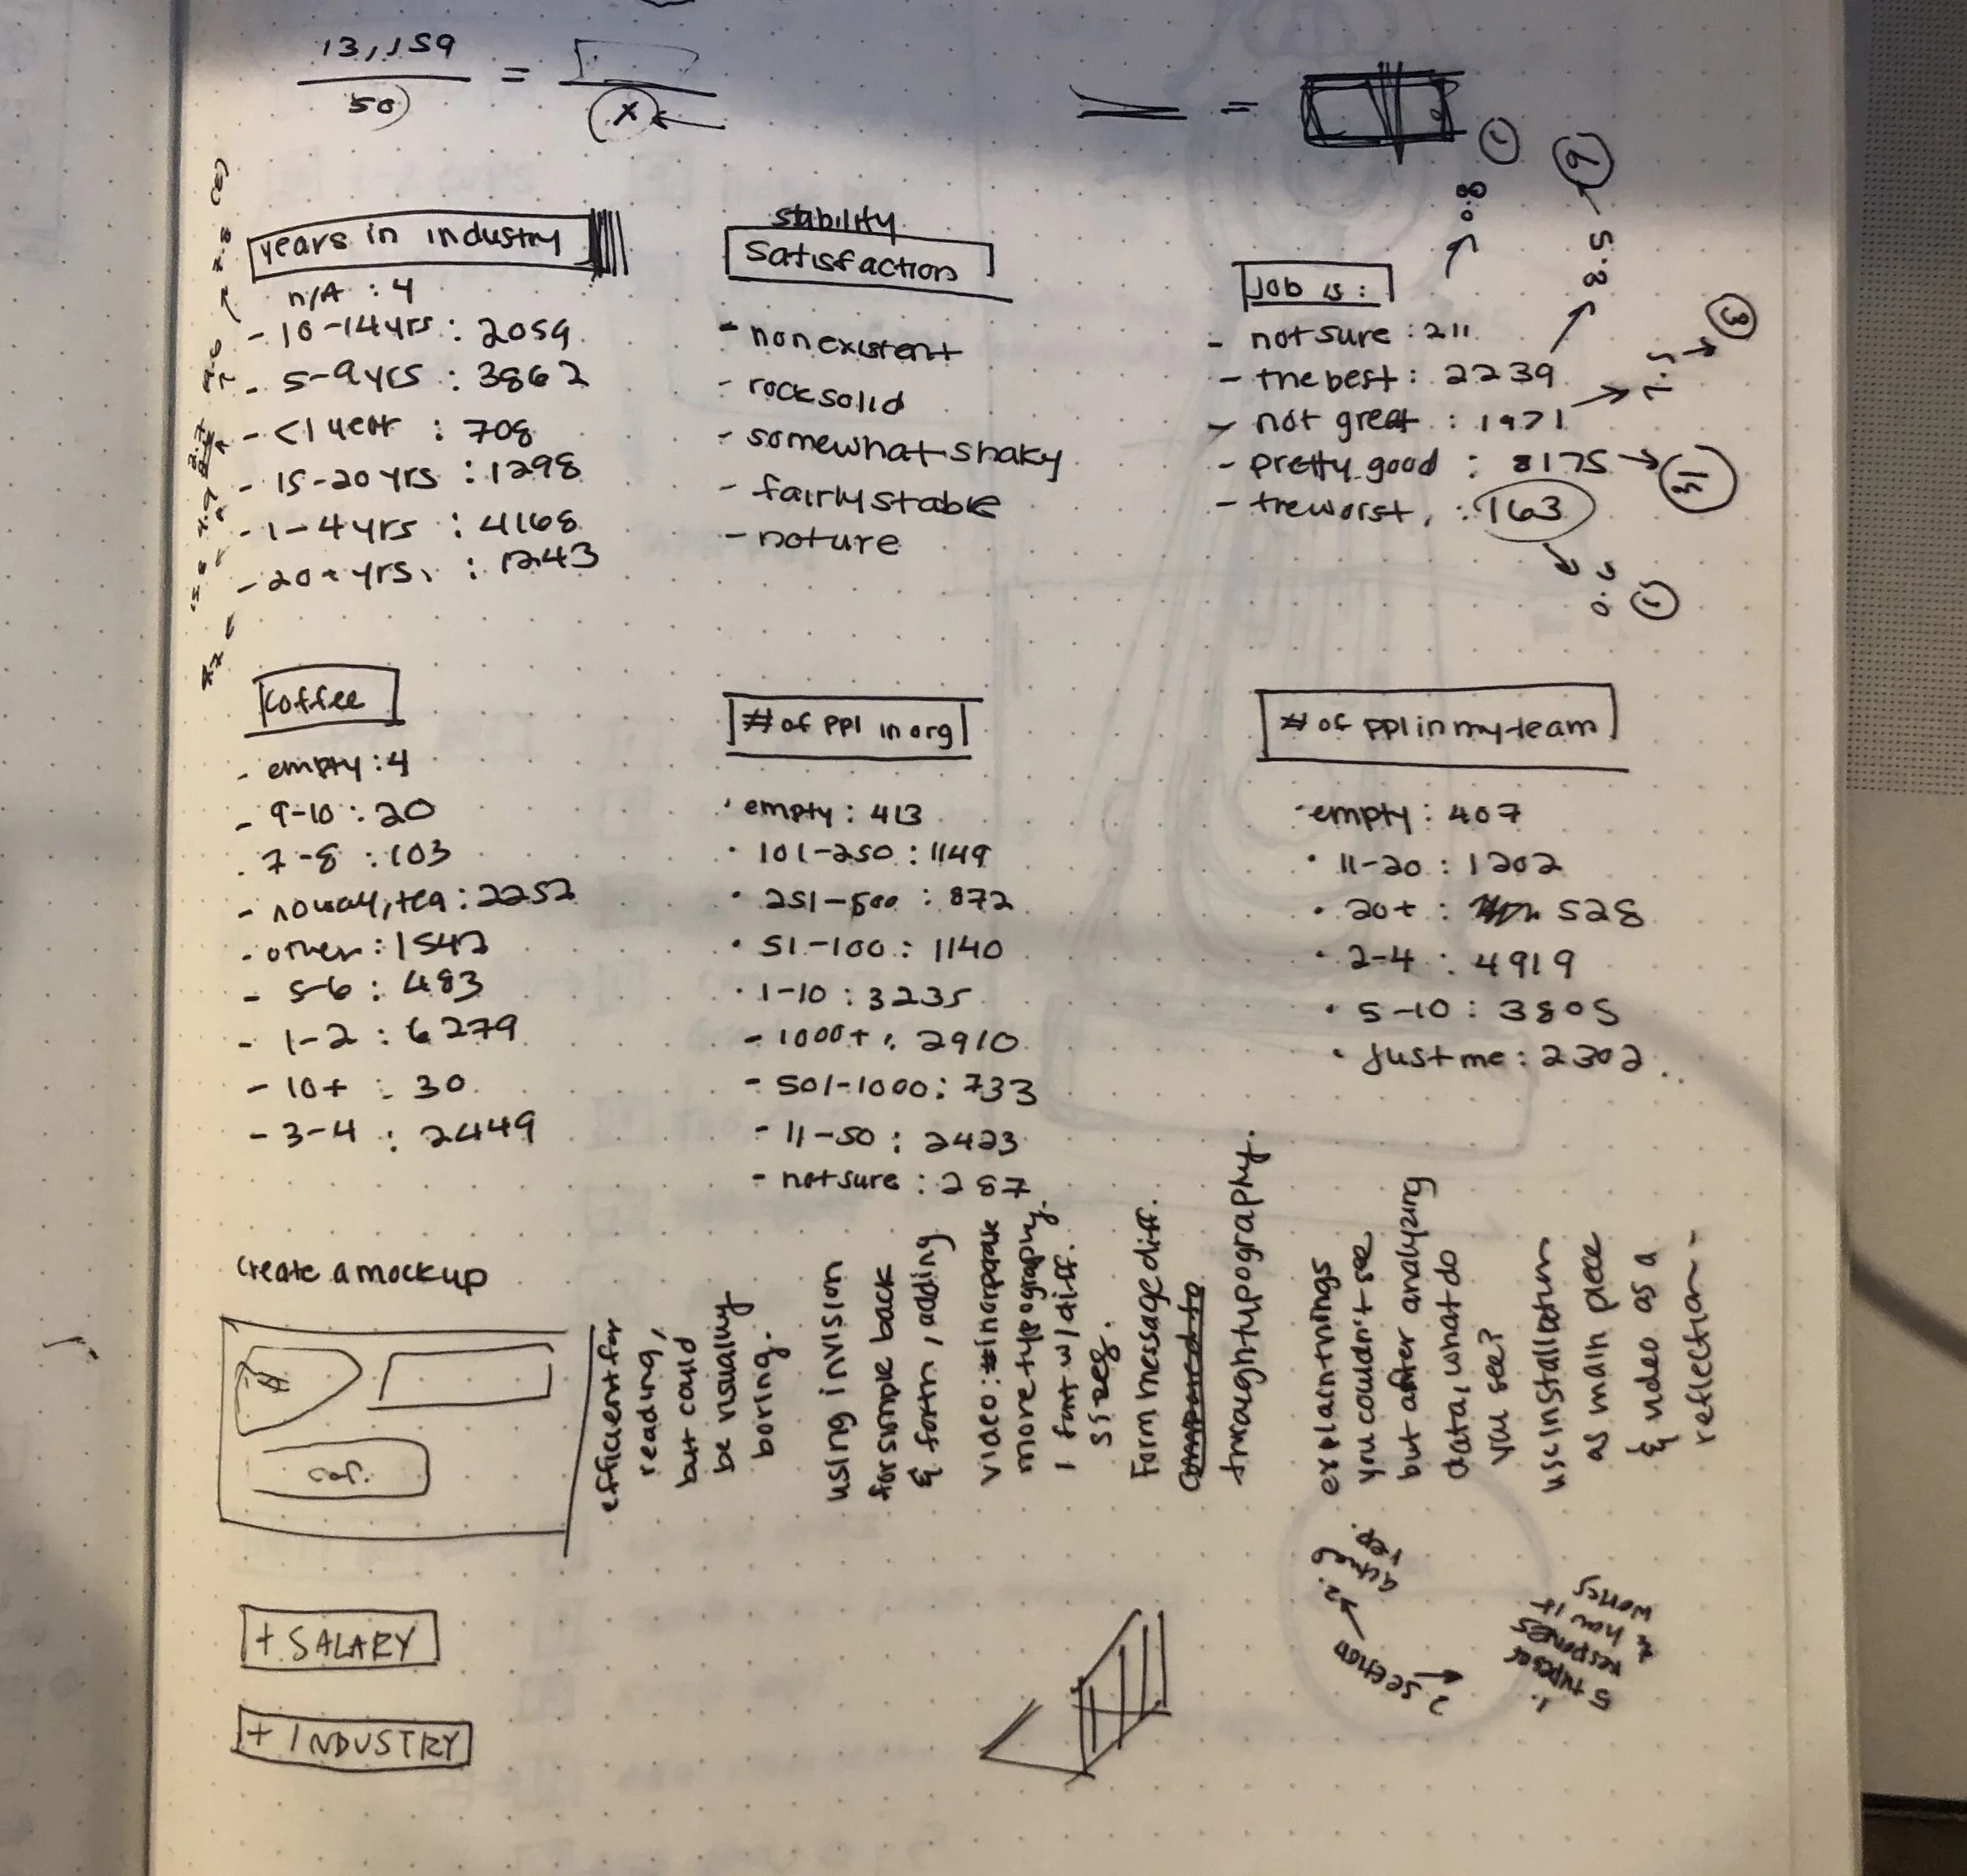 13,159
50
=
x
=
years in industry
n/A : 4
- 10-14 yrs : 2059
- 5-9 yrs : 3862
- <1 year : 708
- 15-20 yrs : 1298
- 1-4 yrs : 4168
- 20+ yrs. : 1243
stability
satisfaction
- nonexistent
- rock solid
- somewhat shaky
- fairly stable
- noture
Job is :
- not sure : 211
- the best : 2239
- not great : 1971
- pretty good : 8175
- the worst, : 163
0.8
1
8.5
9
7.5
31
0.5
coffee
- empty : 4
- 9-10 : 20
- 7-8 : 103
- noway, tea : 2252
- other : 1542
- 5-6 : 483
- 1-2 : 6279
- 10+ : 30
- 3-4 : 2449
# of ppl in org
empty : 413
• 101-250 : 1149
• 251-500 : 872
• 51-100 : 1140
• 1-10 : 3235
- 1000+ : 2910
- 501-1000 : 733
- 11-50 : 2423
- not sure : 287
# of ppl in my team
- empty : 407
• 11-20 : 1202
• 20+ : 528
• 2-4 : 4919
• 5-10 : 3805
• Just me : 2302
create a mockup
#
efficient for
reading,
but could
be visually
boring.
using invision
for simple back
& forth, adding
video: #inorporate
more typography.
1 font w/ diff.
sizes.
Form message diff.
compared to
through typography.
explain things
you couldn't see
but after analyzing
data, what do
you see?
use installation
as main piece
& video as a
reflection-
2 section
2.
rep.
1.
5 types of
respones
& how it
works
+ SALARY
+ INDUSTRY